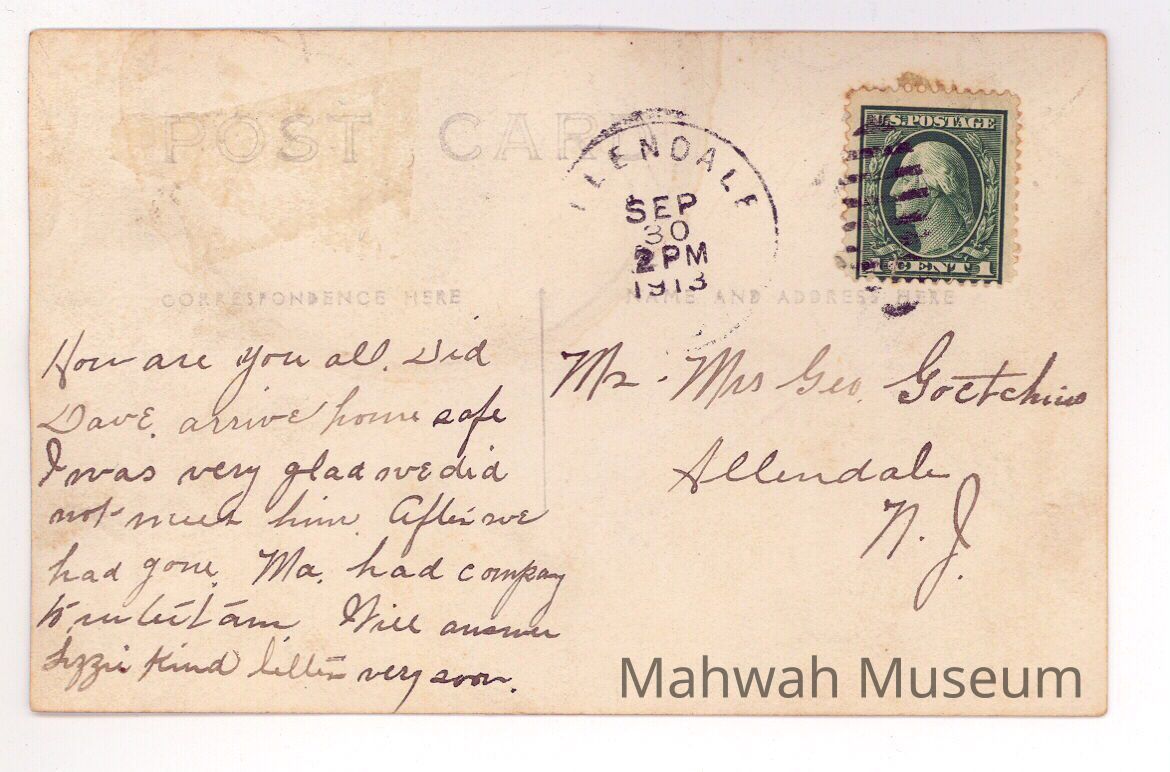 POST CARD
ALLENDALE
SEP
30
2 PM
1913
U.S. POSTAGE
1 CENT 1
CORRESPONDENCE HERE
NAME AND ADDRESS HERE
How are you all. Did
Dave. arrive home safe
I was very glad we did
not meet him. After we
had gone. Ma. had company
to entertain Will answer
Lizzie kind letter very soon.
Mr. Mrs Geo. Goetchius
Allendale
N. J.
Mahwah Museum